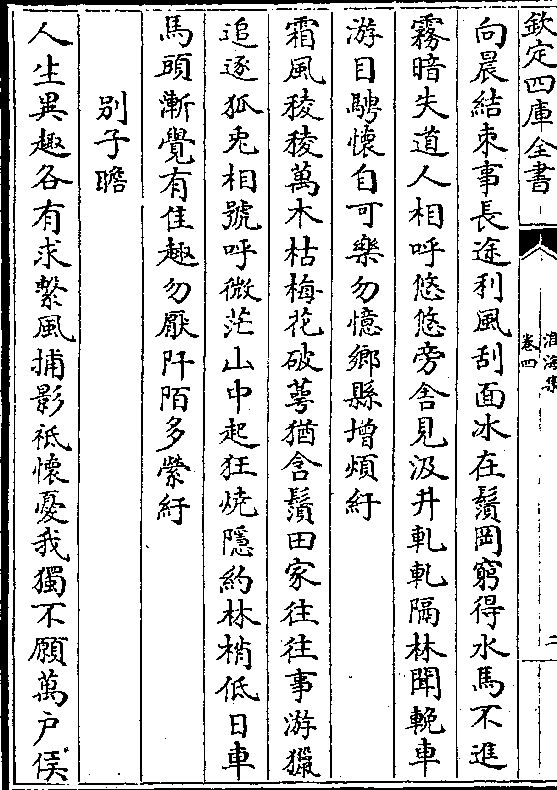 欽定四庫全書
淮海集
卷四
二
向晨結束事長途利風刮面冰在鬚岡窮得水馬不進
霧暗失道人相呼悠悠旁舍見汲井軋軋隔林聞輓車
游目騁懷自可樂勿憶鄉縣增煩紆
霜風稜稜萬木枯梅花破萼猶含鬚田家往往事游獵
追逐狐兎相號呼微茫山中起狂燒隱約林梢低日車
馬頭漸覺有佳趣勿厭阡陌多縈紆
别子瞻
人生異趣各有求繫風捕影祗懷憂我獨不願萬戶侯